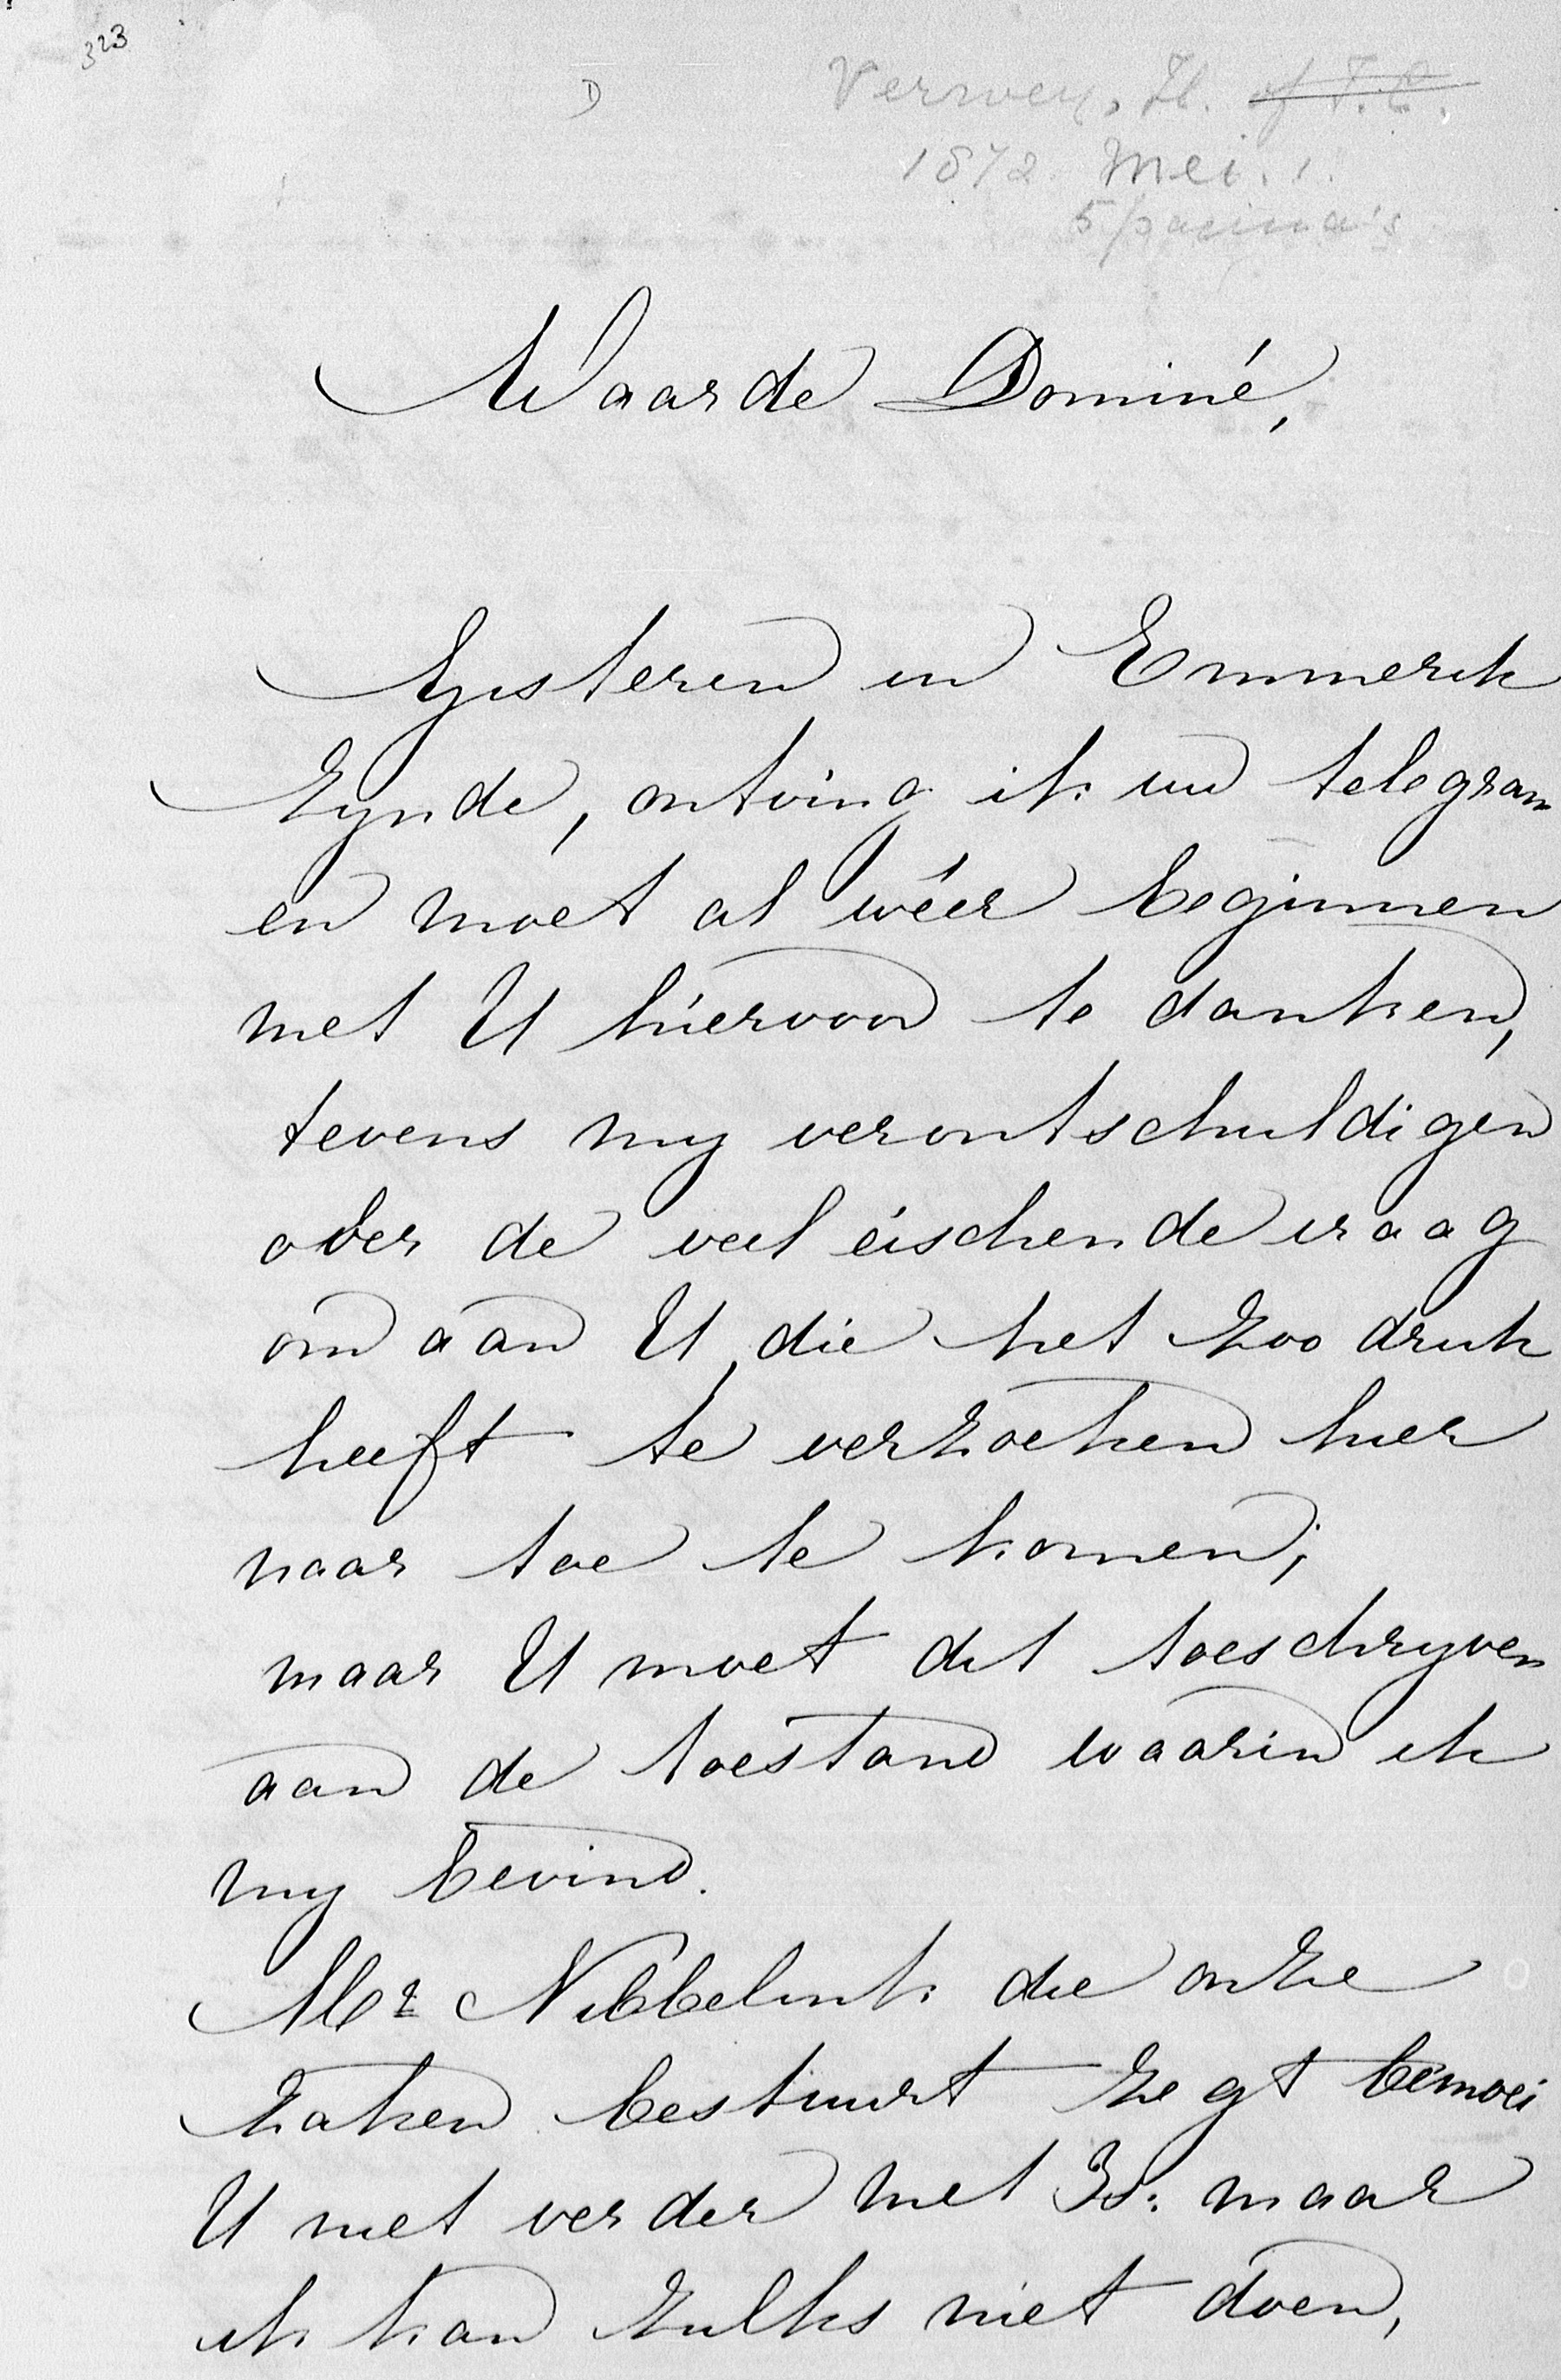 323
D
Verwey, H. of F.C.
1872. Mei. 1.
5 pagina's
Waarde Dominé,
Gisteren in Emmerik
Zynde, ontving ik uw telegram
en moet al wéér beginnen
met U hiervoor te danken,
tevens my verontschuldigen
over de veel eischende vraag
om aan U, die het zoo druk
heeft te verzoeken hier
naar toe te komen;
maar U moet dit toeschryven
aan de toestand waarin ik
my bevind.
Mr Nibbelink die onze
Zaken bestuurt zegt bemoei
U niet verder met Is: maar
ik kan zulks niet doen,